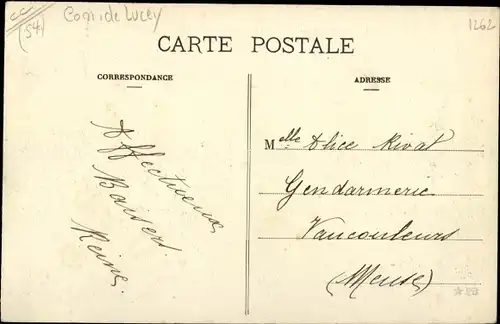 (54)
Com: de Lucey
1262
CARTE POSTALE
CORRESPONDANCE
ADRESSE
Affectueux
Baisers.
Reine.
Melle Alice Rivat
Gendarmerie
Vaucouleurs
(Meuse)